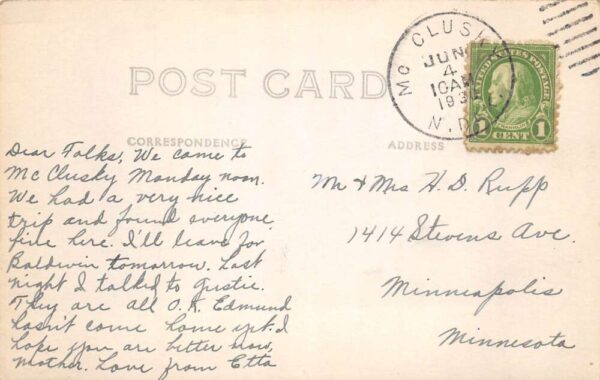 POST CARD
CORRESPONDENCE
ADDRESS
MC CLUSKY
JUN
4
10AM
193
N.D.
UNITED STATES POSTAGE
FRANKLIN
1 1
CENT
Dear Folks, We came to
McClusky Monday noon.
We had a very nice
trip and found everyone
fine here. I'll leave for
Baldwin tomorrow. Last
night I talked to Gustie.
They are all O.K. Edmund
hasn't come home yet. I
hope you are better now,
Mother. Love from Etta
Mr & Mrs H. D. Rupp
1414 Stevens Ave.
Minneapolis
Minnesota